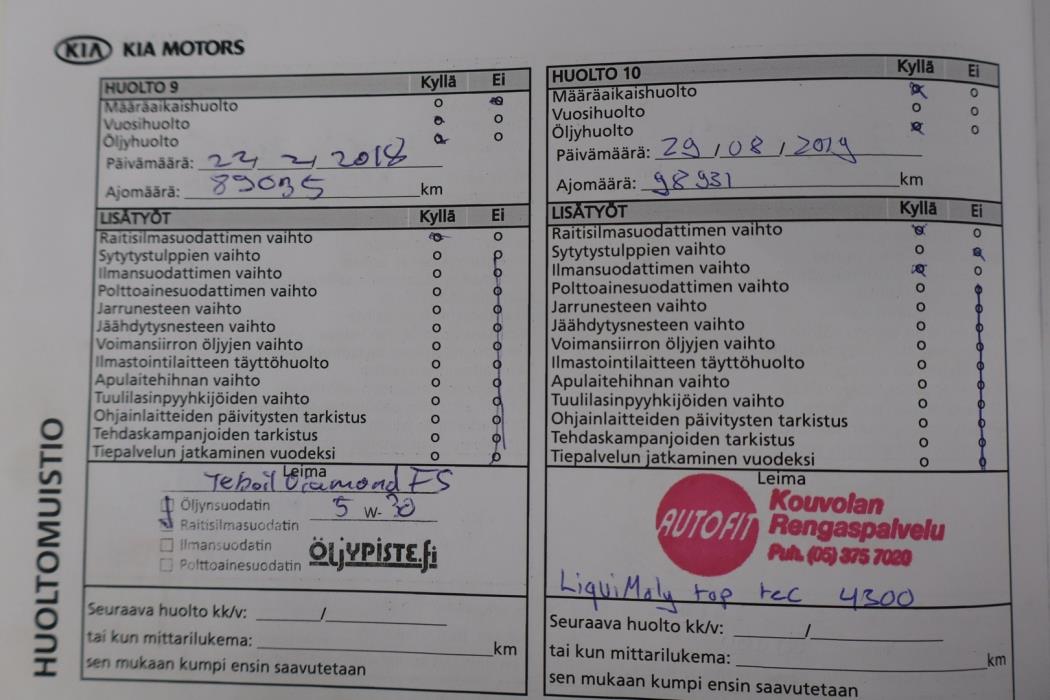 KIA KIA MOTORS
HUOLTOMUISTIO
HUOLTO 9 Kyllä Ei
Määräaikaishuolto
Vuosihuolto
Öljyhuolto
Päivämäärä: 22/2/2018
Ajomäärä: 89035 km
LISÄTYÖT Kyllä Ei
Raitisilmasuodattimen vaihto
Sytytystulppien vaihto
Ilmansuodattimen vaihto
Polttoainesuodattimen vaihto
Jarrunesteen vaihto
Jäähdytysnesteen vaihto
Voimansiirron öljyjen vaihto
Ilmastointilaitteen täyttöhuolto
Apulaitehihnan vaihto
Tuulilasinpyyhkijöiden vaihto
Ohjainlaitteiden päivitysten tarkistus
Tehdaskampanjoiden tarkistus
Tiepalvelun jatkaminen vuodeksi
Leima
Teboil Diamond FS
Öljynsuodatin 5 W- 30
Raitisilmasuodatin
Ilmansuodatin
Polttoainesuodatin
ÖLJYPISTE.fi
Seuraava huolto kk/v: /
tai kun mittarilukema: km
sen mukaan kumpi ensin saavutetaan
HUOLTO 10 Kyllä Ei
Määräaikaishuolto
Vuosihuolto
Öljyhuolto
Päivämäärä: 29/08/2019
Ajomäärä: 98931 km
LISÄTYÖT Kyllä Ei
Raitisilmasuodattimen vaihto
Sytytystulppien vaihto
Ilmansuodattimen vaihto
Polttoainesuodattimen vaihto
Jarrunesteen vaihto
Jäähdytysnesteen vaihto
Voimansiirron öljyjen vaihto
Ilmastointilaitteen täyttöhuolto
Apulaitehihnan vaihto
Tuulilasinpyyhkijöiden vaihto
Ohjainlaitteiden päivitysten tarkistus
Tehdaskampanjoiden tarkistus
Tiepalvelun jatkaminen vuodeksi
Leima
AUTOFIT
Kouvolan
Rengaspalvelu
Puh. (05) 375 7020
LiquiMoly top tec 4300
Seuraava huolto kk/v: /
tai kun mittarilukema: km
sen mukaan kumpi ensin saavutetaan